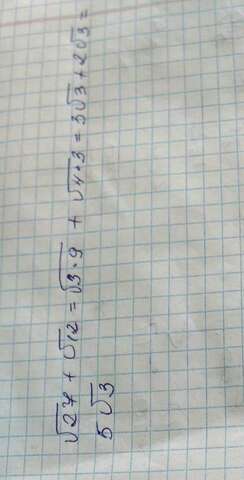 √27 + √12 = √3·9 + √4·3 = 3√3 + 2√3 =
5√3